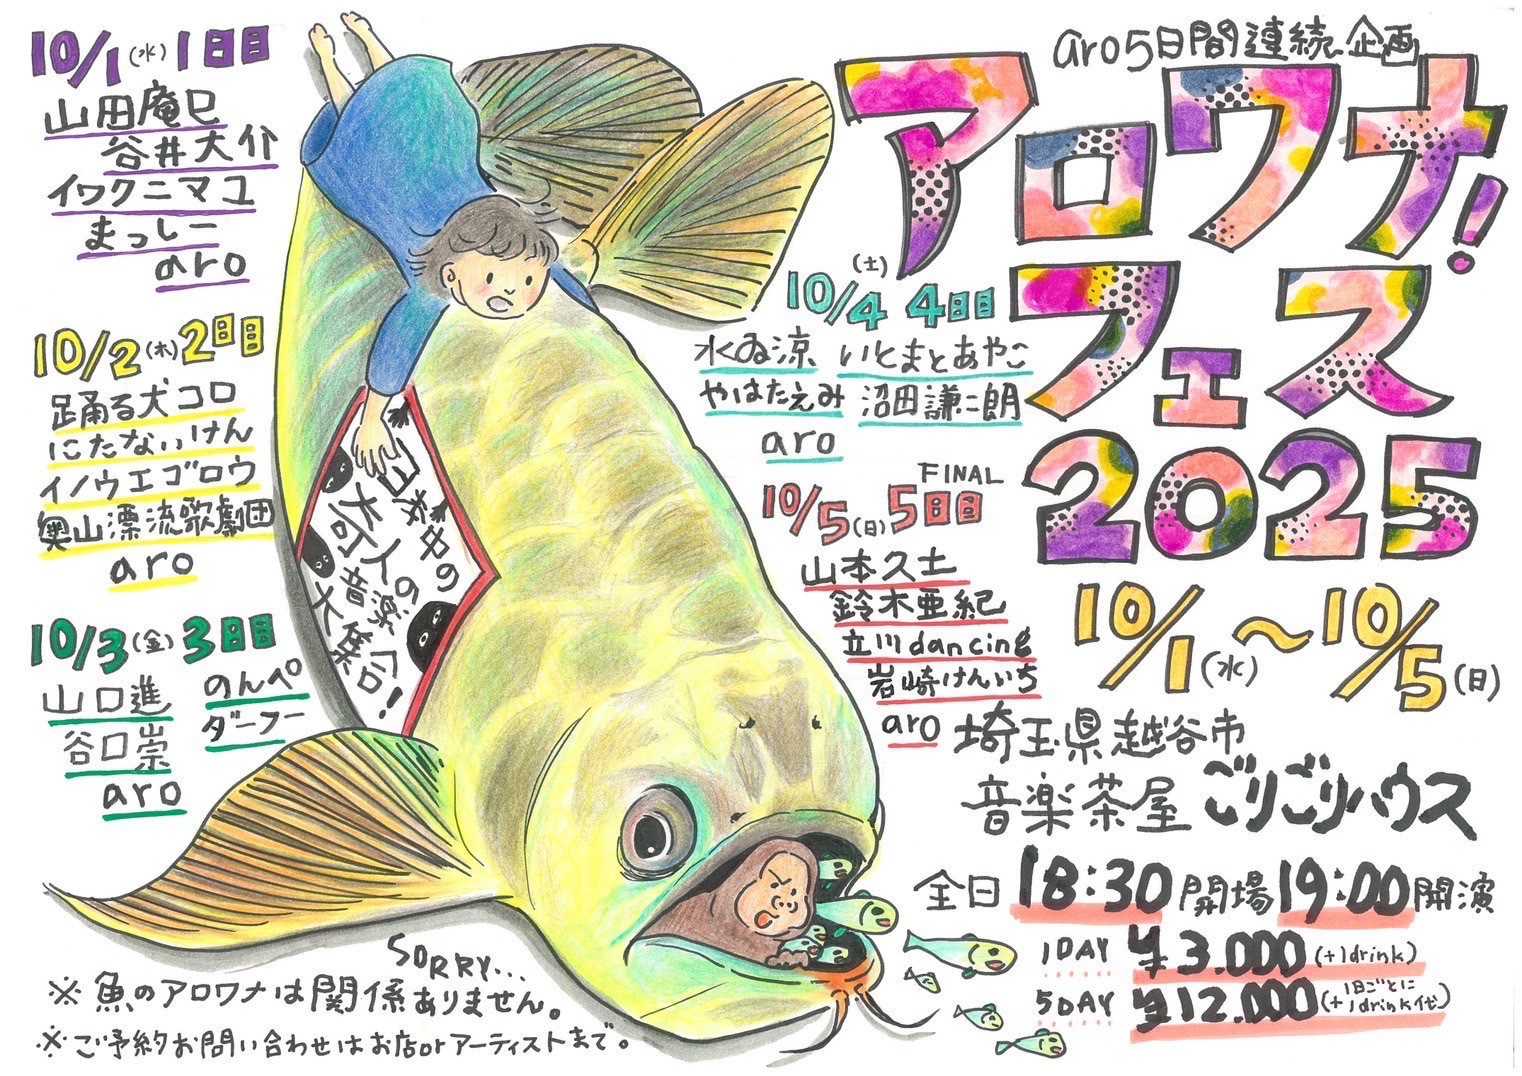 aro5日間連続企画
アロワナ!
フェス
2025
10/1(水)〜10/5(日)
埼玉県越谷市
音楽茶屋 ごりごりハウス
全日 18:30開場 19:00開演
1DAY ¥3.000(+1drink)
5DAY ¥12.000(+1日ごとに1drink代)
10/1(水)1日目
山田庵巳
谷井大介
イワクニマユ
まっしー
aro
10/2(木)2日目
踊る犬コロ
にたないけん
イノウエゴロウ
奥山漂流歌劇団
aro
10/3(金)3日目
山口進
のんペ
ダーフー
谷口崇
aro
10/4(土)4日目
水ゐ涼 いとまとあやこ
やはたえみ 沼田謙二朗
aro
FINAL
10/5(日)5日目
山本久土
鈴木亜紀
立川dancing
岩崎けんいち
aro
日本中の
奇人の
音楽
大集合!
SORRY...
※魚のアロワナは関係ありません。
※ご予約お問い合わせはお店orアーティストまで。